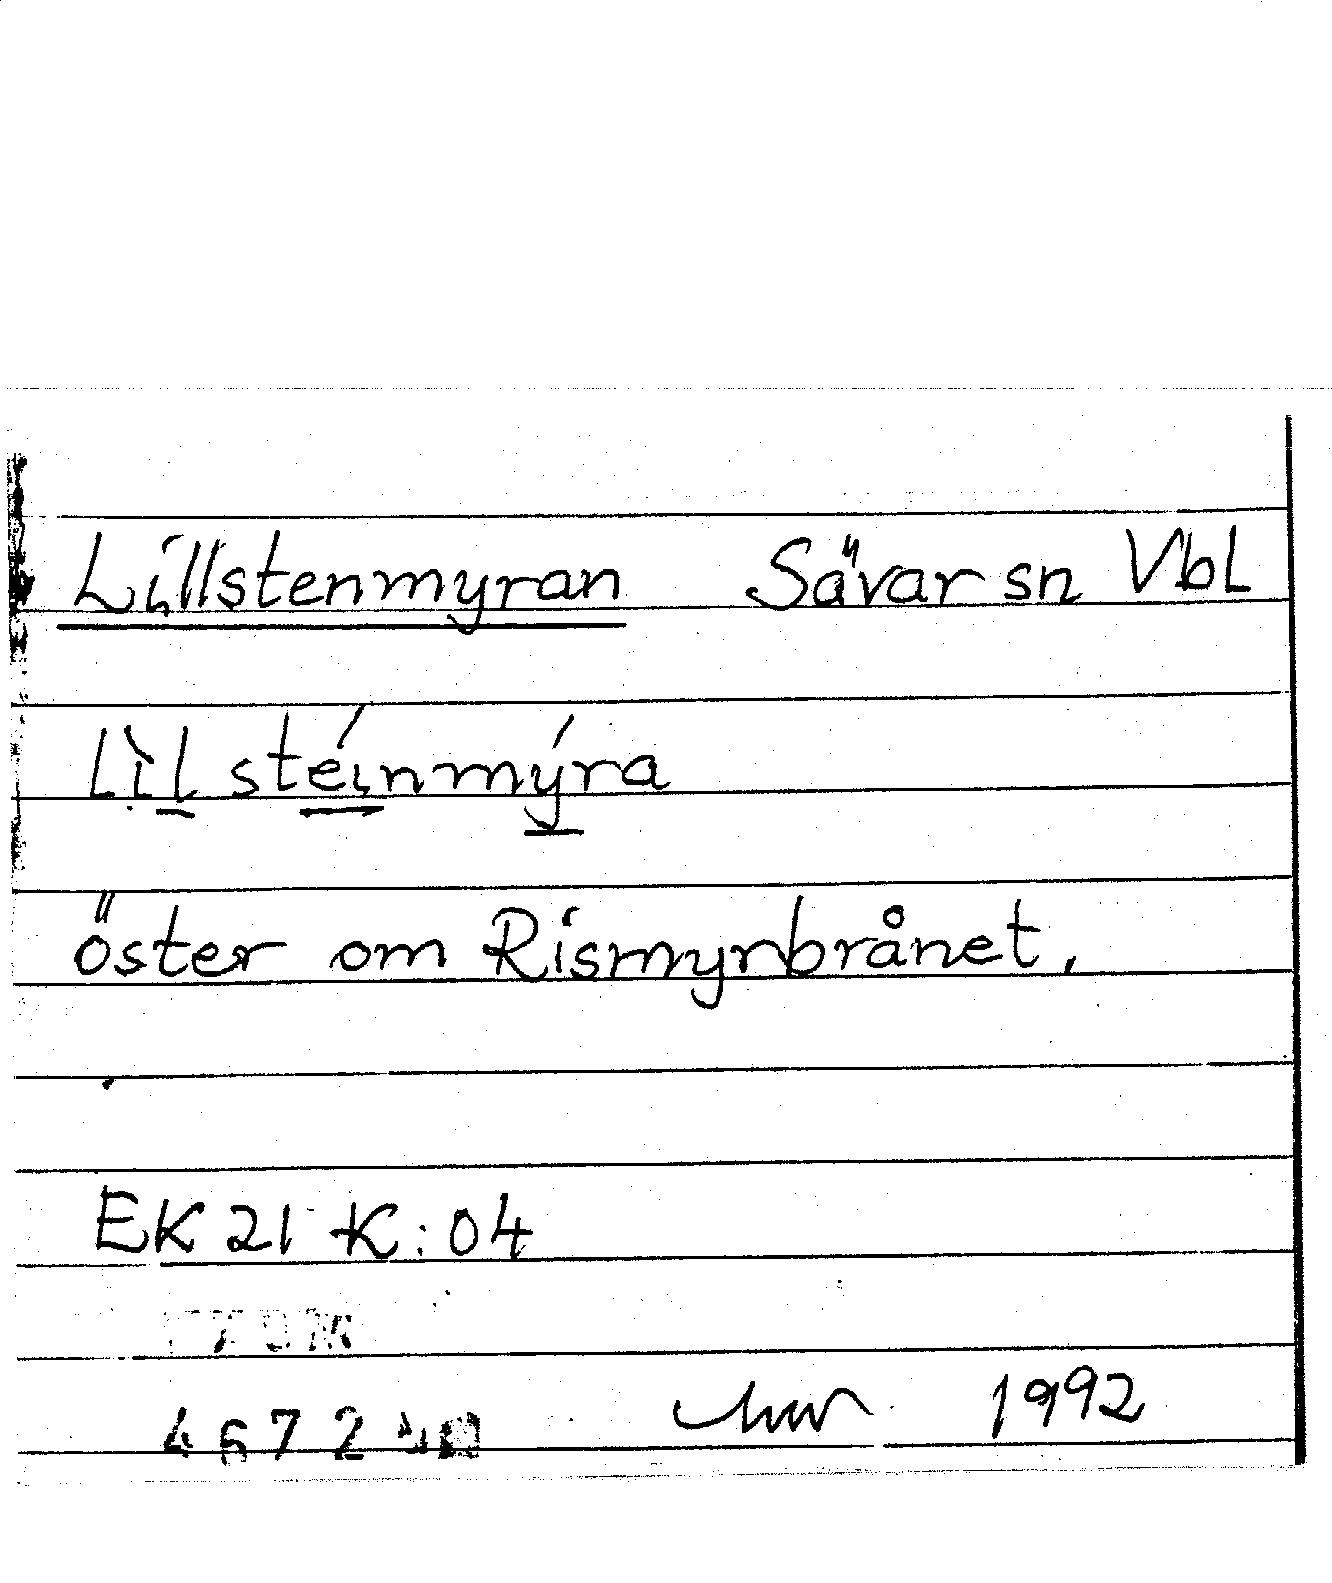 Lillstenmyran Sävar sn Vbl
Lìl stéinmýra
öster om Rismyrbrånet.
EK 21 K:04
1992